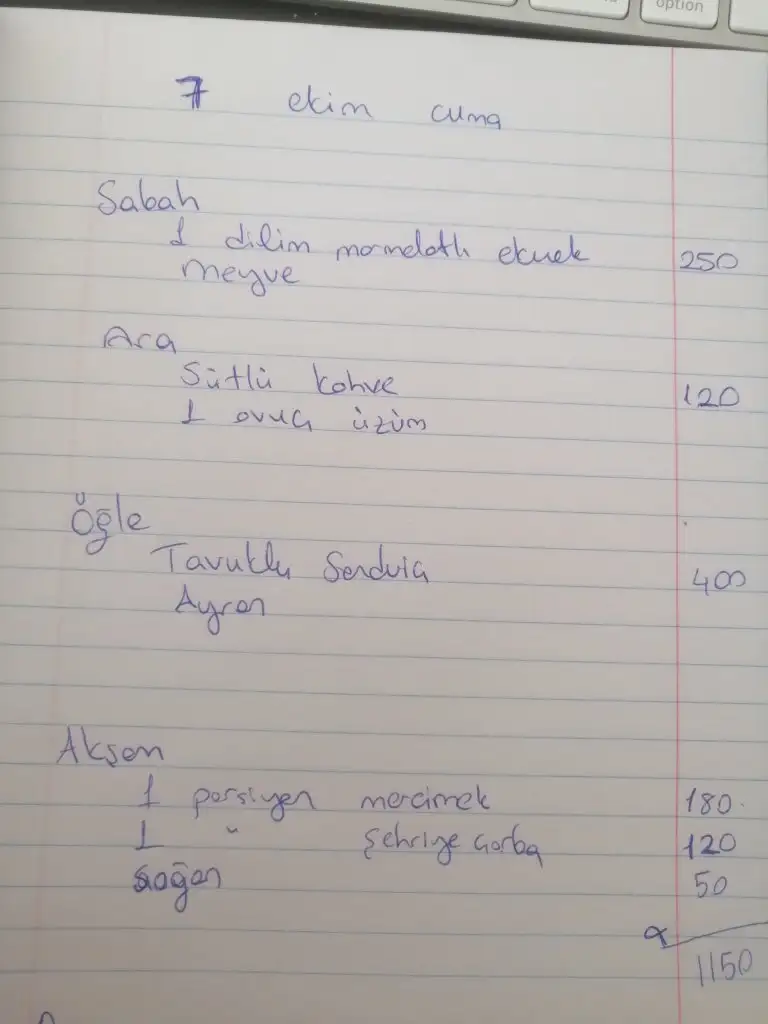 option
7 ekim cuma
Sabah
1 dilim marmelatlı ekmek 250
meyve
Ara
Sütlü kahve 120
1 avuç üzüm
Öğle
Tavuklu Sandviç 400
Ayran
Akşam
1 porsiyon mercimek 180
1 " şehriye çorba 120
soğan 50
1150